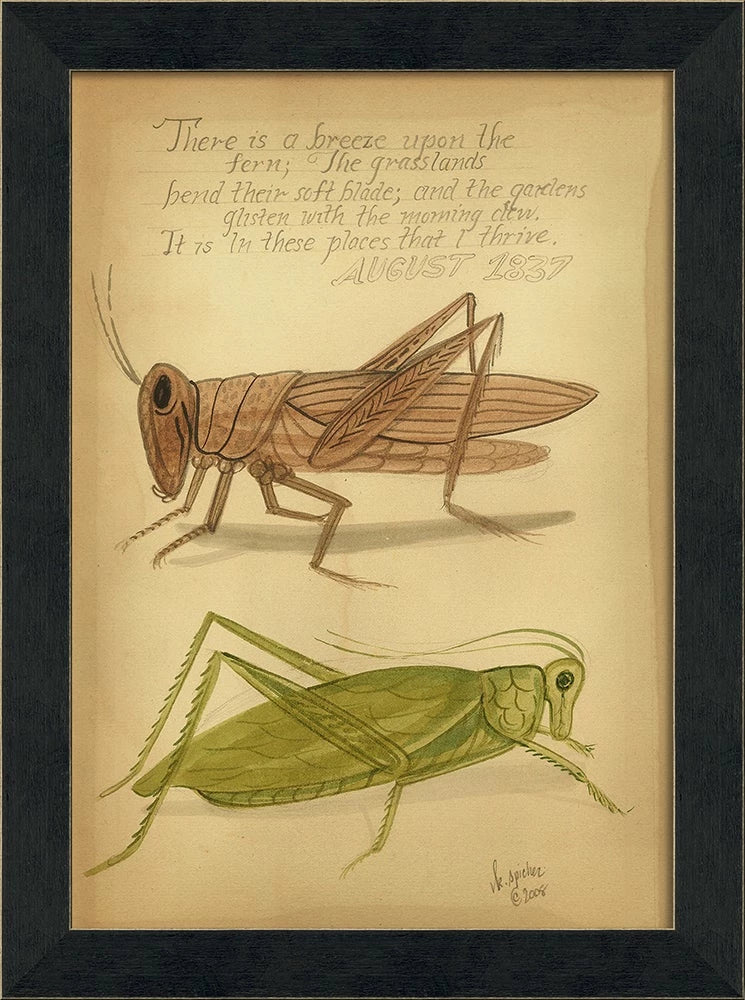 There is a breeze upon the
fern; The grasslands
bend their soft blade; and the gardens
glisten with the morning dew.
It is In these places that I thrive.
AUGUST 1837
k. spicher
© 2008